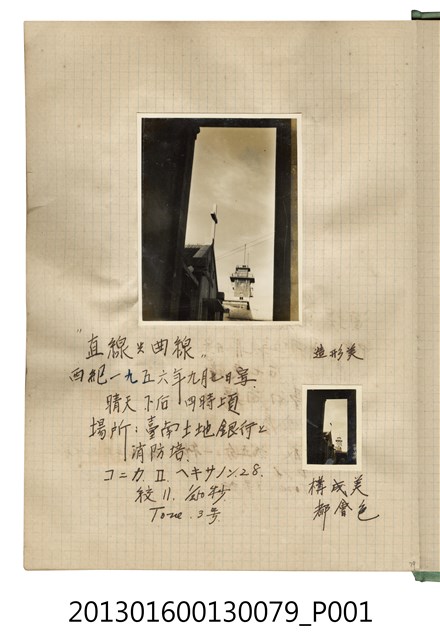 "直線と曲線"
西紀一九五六年九月 日寫
晴天下后 四時頃
場所:臺南土地銀行と
消防塔.
コニカ.Ⅱ.ヘキサノン.2.8.
絞11. 秒.
Tone.3号
造形美
構成美
都會色
201301600130079_P001